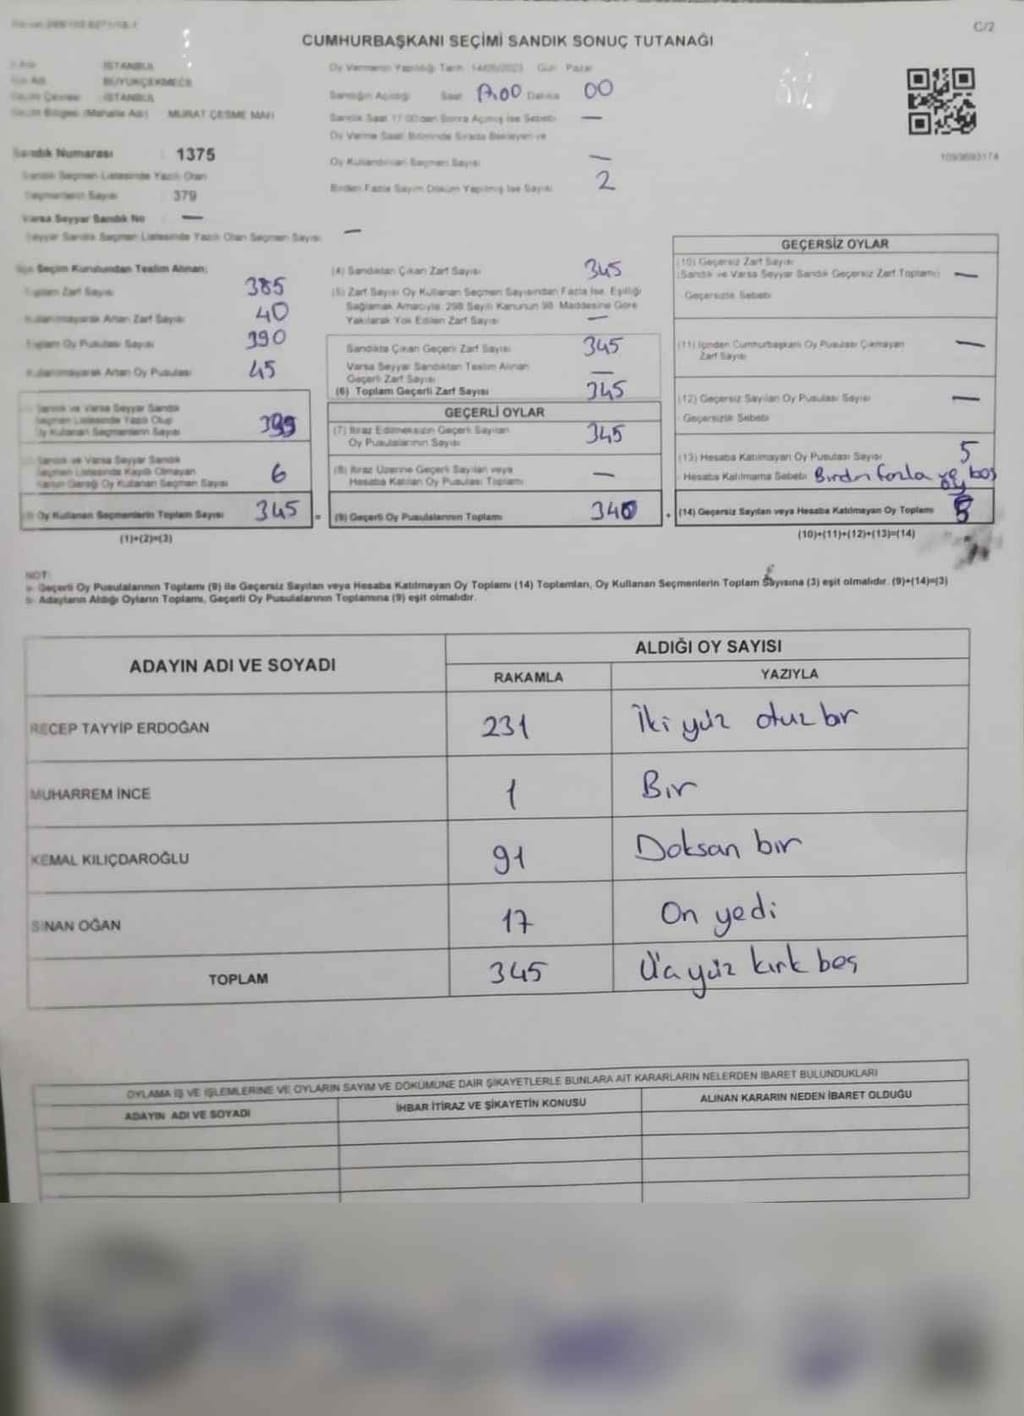 C/2
CUMHURBAŞKANI SEÇİMİ SANDIK SONUÇ TUTANAĞI
İSTANBUL
BÜYÜKÇEKMECE
İSTANBUL
Seçim Bölgesi (Mahalle Adı) MURAT ÇEŞME MAH
Sandık Numarası : 1375
Sandık Seçmen Listesinde Yazılı Olan
Seçmenlerin Sayısı 379
Varsa Seyyar Sandık No —
Seyyar Sandık Seçmen Listesinde Yazılı Olan Seçmen Sayısı —
Oy Vermenin Yapıldığı Tarih : 14/05/2023 Gün : Pazar
Sandığın Açıldığı Saat 17.00 Dakika 00
Sandık Saat 17:00'den Sonra Açılmış İse Sebebi —
Oy Verme Saati Bitiminde Sırada Bekleyen ve
Oy Kullandırılan Seçmen Sayısı —
Birden Fazla Sayım Döküm Yapılmış İse Sayısı 2
1093693174
İlçe Seçim Kurulundan Teslim Alınan;
Toplam Zarf Sayısı 385
Kullanılmayarak Artan Zarf Sayısı 40
Toplam Oy Pusulası Sayısı 390
Kullanılmayarak Artan Oy Pusulası 45
Sandık ve Varsa Seyyar Sandık
Seçmen Listesinde Yazılı Olup
Oy Kullanan Seçmenlerin Sayısı
Sandık ve Varsa Seyyar Sandık
Seçmen Listesinde Kayıtlı Olmayan
Kanun Gereği Oy Kullanan Seçmen Sayısı 6
(3) Oy Kullanan Seçmenlerin Toplam Sayısı 345 =
(1)+(2)=(3)
(4) Sandıktan Çıkan Zarf Sayısı 345
(5) Zarf Sayısı Oy Kullanan Seçmen Sayısından Fazla İse, Eşitliği
Sağlamak Amacıyla, 298 Sayılı Kanunun 98. Maddesine Göre
Yakılarak Yok Edilen Zarf Sayısı —
Sandıkta Çıkan Geçerli Zarf Sayısı 345
Varsa Seyyar Sandıktan Teslim Alınan
Geçerli Zarf Sayısı —
(6) Toplam Geçerli Zarf Sayısı 345
GEÇERLİ OYLAR
(7) İtiraz Edilmeksizin Geçerli Sayılan
Oy Pusulalarının Sayısı 345
(8) İtiraz Üzerine Geçerli Sayılan veya
Hesaba Katılan Oy Pusulası Toplamı —
(9) Geçerli Oy Pusulalarının Toplamı 340 +
GEÇERSİZ OYLAR
(10) Geçersiz Zarf Sayısı
(Sandık ve Varsa Seyyar Sandık Geçersiz Zarf Toplamı) —
Geçersizlik Sebebi
(11) İçinden Cumhurbaşkanı Oy Pusulası Çıkmayan
Zarf Sayısı —
(12) Geçersiz Sayılan Oy Pusulası Sayısı —
Geçersizlik Sebebi
(13) Hesaba Katılmayan Oy Pusulası Sayısı 5
Hesaba Katılmama Sebebi Birden fazla oy ve boş
(14) Geçersiz Sayılan veya Hesaba Katılmayan Oy Toplamı 5
(10)+(11)+(12)+(13)=(14)
NOT:
a- Geçerli Oy Pusulalarının Toplamı (9) ile Geçersiz Sayılan veya Hesaba Katılmayan Oy Toplamı (14) Toplamları, Oy Kullanan Seçmenlerin Toplam Sayısına (3) eşit olmalıdır. (9)+(14)=(3)
b- Adayların Aldığı Oyların Toplamı, Geçerli Oy Pusulalarının Toplamına (9) eşit olmalıdır.
ADAYIN ADI VE SOYADI ALDIĞI OY SAYISI
RAKAMLA YAZIYLA
RECEP TAYYİP ERDOĞAN 231 İki yüz otuz bir
MUHARREM İNCE 1 Bir
KEMAL KILIÇDAROĞLU 91 Doksan bir
SİNAN OĞAN 17 On yedi
TOPLAM 345 Üç yüz kırk beş
OYLAMA İŞ VE İŞLEMLERİNE VE OYLARIN SAYIM VE DÖKÜMÜNE DAİR ŞİKAYETLERLE BUNLARA AİT KARARLARIN NELERDEN İBARET BULUNDUKLARI
ADAYIN ADI VE SOYADI İHBAR İTİRAZ VE ŞİKAYETİN KONUSU ALINAN KARARIN NEDEN İBARET OLDUĞU